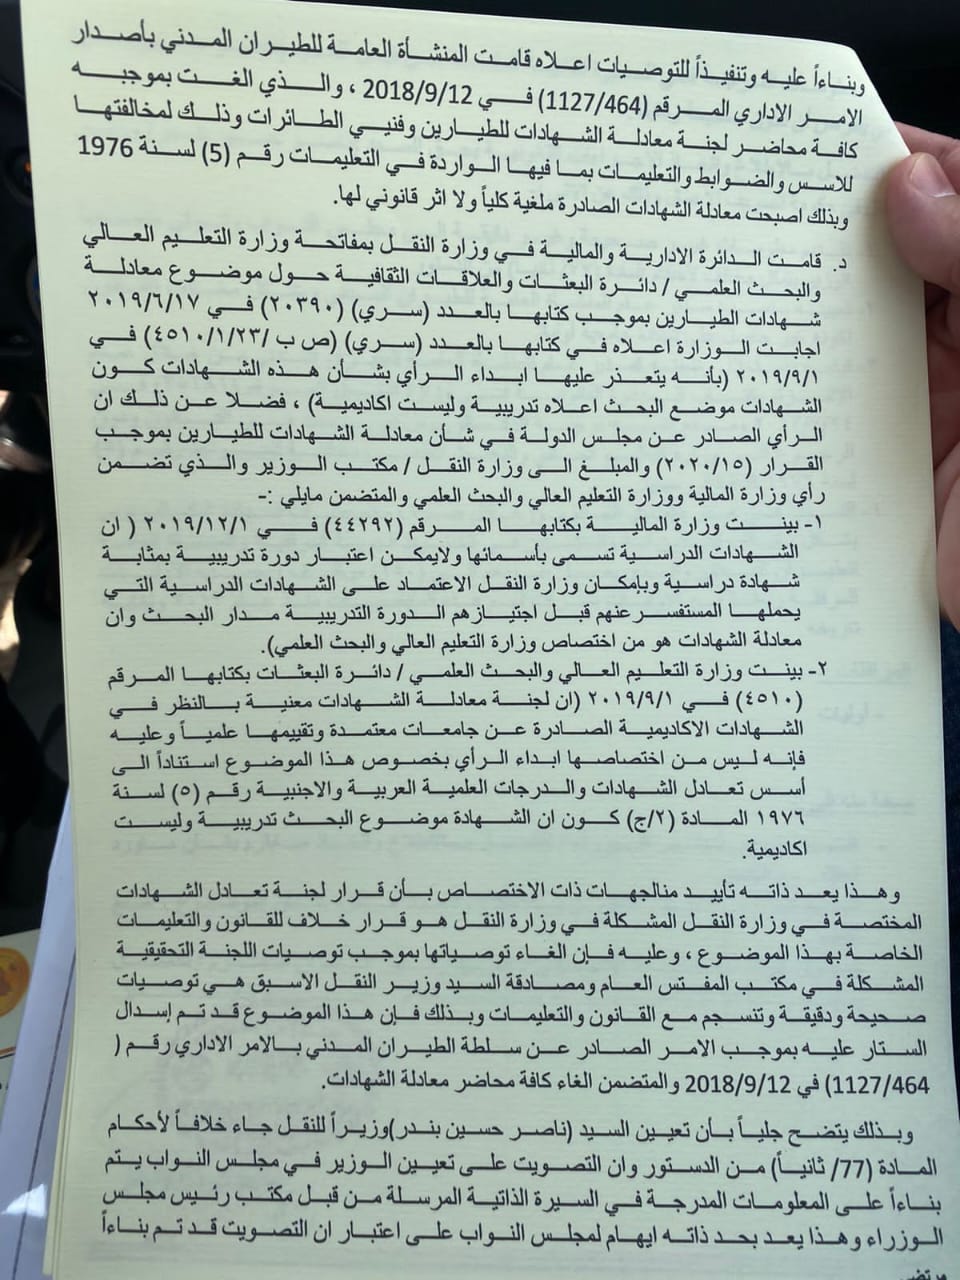 وبناءاً عليه وتنفيذاً للتوصيات اعلاه قامت المنشأة العامة للطيران المدني بأصدار
الامر الاداري المرقم (1127/464) في 2018/9/12 ، والذي الغت بموجبه
كافة محاضر لجنة معادلة الشهادات للطيارين وفنيي الطائرات وذلك لمخالفتها
للاسس والضوابط والتعليمات بما فيها الواردة في التعليمات رقم (5) لسنة 1976
وبذلك اصبحت معادلة الشهادات الصادرة ملغية كلياً ولا اثر قانوني لها.
د. قامت الدائرة الادارية والمالية في وزارة النقل بمفاتحة وزارة التعليم العالي
والبحث العلمي / دائرة البعثات والعلاقات الثقافية حول موضوع معادلة
شهادات الطيارين بموجب كتابها بالعدد (سري) (٢٠٣٩٠) في ٢٠١٩/٦/١٧
اجابت الوزارة اعلاه في كتابها بالعدد (سري) (ص ب /٤٥١٠/١/٢٣) في
٢٠١٩/٩/١ (بأنه يتعذر عليها ابداء الرأي بشأن هذه الشهادات كون
الشهادات موضع البحث اعلاه تدريبية وليست اكاديمية) ، فضلا عن ذلك ان
الرأي الصادر عن مجلس الدولة في شأن معادلة الشهادات للطيارين بموجب
القرار (٢٠٢٠/١٥) والمبلغ الى وزارة النقل / مكتب الوزير والذي تضمن
رأي وزارة المالية ووزارة التعليم العالي والبحث العلمي والمتضمن مايلي :-
١- بينت وزارة المالية بكتابها المرقم (٤٤٢٩٢) في ٢٠١٩/١٢/١ ( ان
الشهادات الدراسية تسمى بأسمائها ولايمكن اعتبار دورة تدريبية بمثابة
شهادة دراسية وبإمكان وزارة النقل الاعتماد على الشهادات الدراسية التي
يحملها المستفسر عنهم قبل اجتيازهم الدورة التدريبية مدار البحث وان
معادلة الشهادات هو من اختصاص وزارة التعليم العالي والبحث العلمي).
٢- بينت وزارة التعليم العالي والبحث العلمي / دائرة البعثات بكتابها المرقم
(٤٥١٠) في ٢٠١٩/٩/١ (ان لجنة معادلة الشهادات معنية بالنظر في
الشهادات الاكاديمية الصادرة عن جامعات معتمدة وتقييمها علمياً وعليه
فإنه ليس من اختصاصها ابداء الرأي بخصوص هذا الموضوع استناداً الى
أسس تعادل الشهادات والدرجات العلمية العربية والاجنبية رقم (٥) لسنة
١٩٧٦ المادة (٢/ج) كون ان الشهادة موضوع البحث تدريبية وليست
اكاديمية.
وهذا يعد ذاته تأييد منالجهات ذات الاختصاص بأن قرار لجنة تعادل الشهادات
المختصة في وزارة النقل المشكلة في وزارة النقل هو قرار خلاف للقانون والتعليمات
الخاصة بهذا الموضوع ، وعليه فإن الغاء توصياتها بموجب توصيات اللجنة التحقيقية
المشكلة في مكتب المفتس العام ومصادقة السيد وزير النقل الاسبق هي توصيات
صحيحة ودقيقة وتنسجم مع القانون والتعليمات وبذلك فإن هذا الموضوع قد تم إسدال
الستار عليه بموجب الامر الصادر عن سلطة الطيران المدني بالامر الاداري رقم (
1127/464) في 2018/9/12 والمتضمن الغاء كافة محاضر معادلة الشهادات.
وبذلك يتضح جلياً بأن تعيين السيد (ناصر حسين بندر)وزيراً للنقل جاء خلافاً لأحكام
المادة (77/ ثانياً) من الدستور وان التصويت على تعيين الوزير في مجلس النواب يتم
بناءاً على المعلومات المدرجة في السيرة الذاتية المرسلة من قبل مكتب رئيس مجلس
الوزراء وهذا يعد بحد ذاته ايهام لمجلس النواب على اعتبار ان التصويت قد تم بناءاً